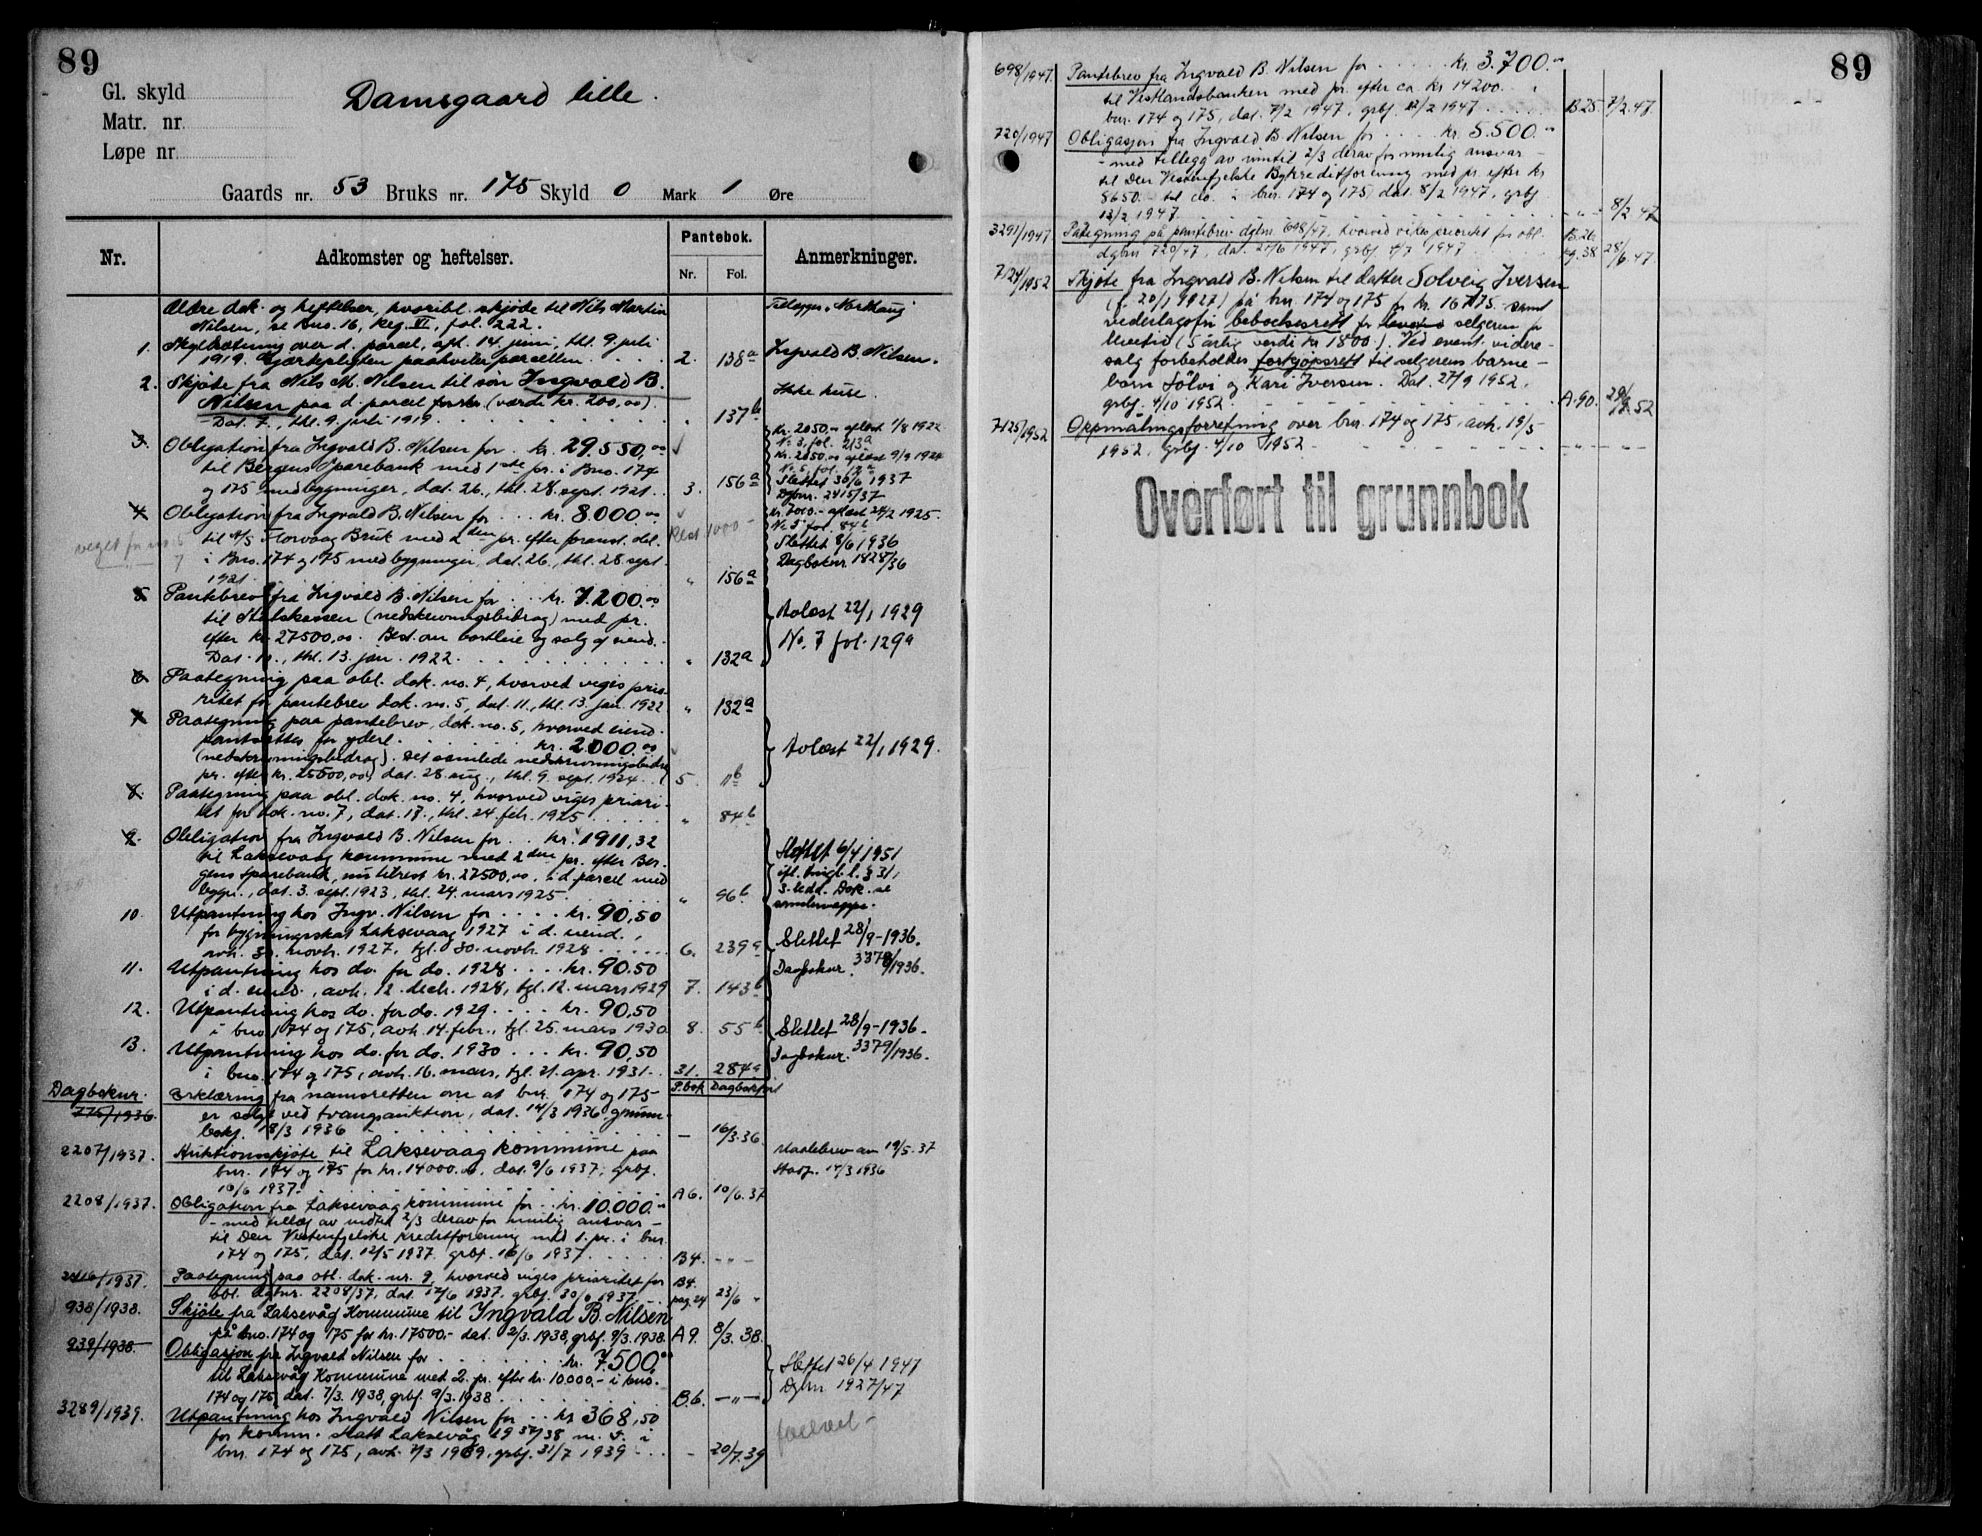 89
Gl. skyld
Matr. nr.
Løpe nr.
Damsgaard lille.
Gaards nr. 53 Bruks nr. 175 Skyld 0 Mark 1 Øre
Nr. Adkomster og heftelser. Pantebok. Nr. Fol. Anmerkninger.
Ældre dok. og heftelser, hvoribl. skjøde til Nils Martin
Nilsen, se Bno. 16, Reg. VI, fol. 222.
1. Skyldsætning over d. parcel, afh. 14. juni, thl. 9. juli
1919. Gjærdepligten paahviler parcellen. 2. 138a Ingvald B. Nilsen.
2. Skjøte fra Nils M. Nilsen til søn Ingvald B.
Nilsen paa d. parcel (værdi kr. 200,00). Ikke huse.
Dat. 7., thl. 9. juli 1919. " 137b
3. Obligation fra Ingvald B. Nilsen for kr. 29.550,00
til Bergens Sparebank med 1ste pr. i Bno. 174
og 175 med bygninger, dat. 26., thl. 28. sept. 1921. 3. 156a
Kr. 2050,- aflæst 1/8 1922
No. 3, fol. 213a
Kr. 2050,00 aflæst 9/9 1924
No. 5, fol. 12a
Slettet 30/6 1937
Dgbnr. 2415/37
4. Obligation fra Ingvald B. Nilsen for kr. 8.000,00
til A/S Florvaag Bruk med 2den pr. efter foranst. obl.
i Bno. 174 og 175 med bygninger, dat. 26., thl. 28. sept.
1921. " 156a
veget for no. 5
" " 7
Rest 1000 -
Kr. 7000.- aflæst 24/2 1925.
No 5 fol. 84b
Slettet 8/6 1936
Dagboknr. 1828/36
5. Pantebrev fra Ingvald B. Nilsen for kr. 7.200,00
til Statskassen (nedskrivningsbidrag) med pr.
efter kr. 27500,00. Best. om bortleie og salg af eiend.
Dat. 11., thl. 13. jan. 1922. " 132a
Avlæst 22/1 1929
No. 7 fol. 129a
6. Paategning paa obl. dok. no. 4, hvorved viges prio-
ritet for pantebrev dok. no. 5, dat. 11., thl. 13. jan. 1922 " 132a
7. Paategning paa pantebrev, dok. no. 5, hvorved eiend.
pantsættes for yderl. kr. 2000,00
(nedskrivningsbidrag). Det samlede nedskrivningsbidrag
pr. efter kr. 25500,00) dat. 28. aug., thl. 9. sept. 1924. 5. 11b
Avlæst 22/1 1929.
8. Paategning paa obl. dok. no. 4, hvorved viges priori-
tet for dok. no. 7, dat. 17., thl. 24. febr. 1925 " 84b
9. Obligation fra Ingvald B. Nilsen for kr. 1911,32
til Laksevaag kommune med 2den pr. efter Ber-
gens Sparebank, nu tilrest kr. 27500,00, i d. parcel med
bygn., dat. 3. sept. 1923, thl. 24. mars 1925. " 96b
Slettet 6/4 1951
ifl. tingl. l. § 31,
3. ledd. Dok. se
10. Utpantning hos Ingv. Nilsen for kr. 90,50
for bygningsskat Laksevaag 1927 i d. eiend.,
avh. 30. novbr. 1927, tgl. 30. novbr. 1928 6. 239a
Slettet 28/9-1936.
Dagboknr. 3378/1936.
11. Utpantning hos do. for do. 1928 kr. 90.50
i d. eiend., avh. 12. decbr. 1928, tgl. 12. mars 1929 7. 143b
12. Utpantning hos do. for do. 1929 kr. 90,50
i bno. 174 og 175, avh. 14. febr., tgl. 25. mars 1930 8. 55b
Slettet 28/9-1936.
Dagboknr. 3379/1936.
13. Utpantning hos do. for do. 1930 kr. 90,50
i bno. 174 og 175, avh. 16. mars, tgl. 21. apr. 1931. 31. 284a
Dagboknr. P.bok Dagbokført
775/1936. Erklæring fra namsretten om at bnr. 174 og 175
er solgt ved tvangsauktion, dat. 14/3 1936 grunn-
bokf. 18/3 1936 - 16/3.36.
2207/1937. Auktionsskjøte til Laksevaag kommune paa
bnr. 174 og 175 for kr. 14000.00, dat. 9/6 1937, grbf.
10/6 1937. A6. 10/6.37
Maalebrev av 19/5.37
2208/1937. Obligation fra Laksevaag kommune for kr. 10.000.00
- med tillæg av indtil 2/3 derav for mulig ansvar -
til Den Vestenfjelske Kreditforening med 1. pr. i bnr.
174 og 175, dat. 12/5 1937 grbf. 10/6 1937. B4. - " -
2416/1937. Paategning paa obl. dok. nr. 9, hvorved viges prioritet for B4.
obl. dgbnr. 2208/37, dat. 17/6 1937. grbf. 30/6 1937. pag. 24 23/6 "
938/1938. Skjøte fra Laksevåg Kommune til Ingvald B. Nilsen
på bno. 174 og 175 for kr. 17500.- dat. 2/3. 1938, grbf. 9/3. 1938. A9. 8/3. 38.
939/1938 Obligasjon fra Ingvald Nilsen for kr. 7.500.00
til Laksevåg Kommune med 2. pr. efter kr. 10000,- i bno.
174 og 175, dat. 7/3. 1938, grbf. 9/3. 1938 B.6. - " -
Slettet 26/4 1947
Dgbnr. 1927/47
3289/1939. Utpantning hos Ingvald Nilsen for kr 368,50
for komm. skatt Laksevåg 1937/38 m. v. i
bnr. 174 og 175, avh. 7/3 1939, grbf. 31/7 1939 - 20/7.39
89
698/1947. Pantebrev fra Ingvald B. Nilsen for kr. 3.700.00
til Vestlandsbanken med pr. efter ca. kr 14200.- i
bnr. 174 og 175, dat. 7/2 1947, grbf. 12/2 1947 B25 7/2.47.
720/1947 Obligasjon fra Ingvald B. Nilsen for kr. 5.500.00
- med tillegg av inntil 2/3 derav for mulig ansvar -
til Den Vestenfjelske Bykreditforening med pr. efter kr
8650.- til do. i bnr. 174 og 175, dat. 8/2 1947, grbf
13/2 1947. - " - 8/2 47
3291/1947. Påtegning på pantebrev dgbnr. 698/47, hvorved vikes prioritet for obl. B.26
dgbnr 720/47, dat. 27/6 1947, grbf 4/7 1947 pg. 38 28/6.47.
7124/1952 Skjøte fra Ingvald B. Nilsen til datter Solveig Iversen
(f. 20/1 1927) på bnr 174 og 175 for kr. 16775.- samt
vederlagsfri beboelsesrett for selgeren for
livstid (5 årlig verdi kr 1800.-). Ved event. videre-
salg forbeholdes forkjøpsrett til selgerens barne-
barn Sölvi og Kari Iversen. Dat. 27/9 1952,
grbf. 4/10 1952. A.90. 29/9.52
7125/1952 Oppmålingsforretning over bnr. 174 og 175, avh. 19/5
1952, grbf. 4/10 1952 - " - - " -
Overført til grunnbok